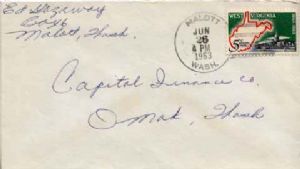 Ed Hazaway
Box 6
Malott, Wash.
MALOTT
JUN
26
4 PM
1963
WASH.
WEST VIRGINIA
5¢
Capital Finance Co.
Omak, Wash